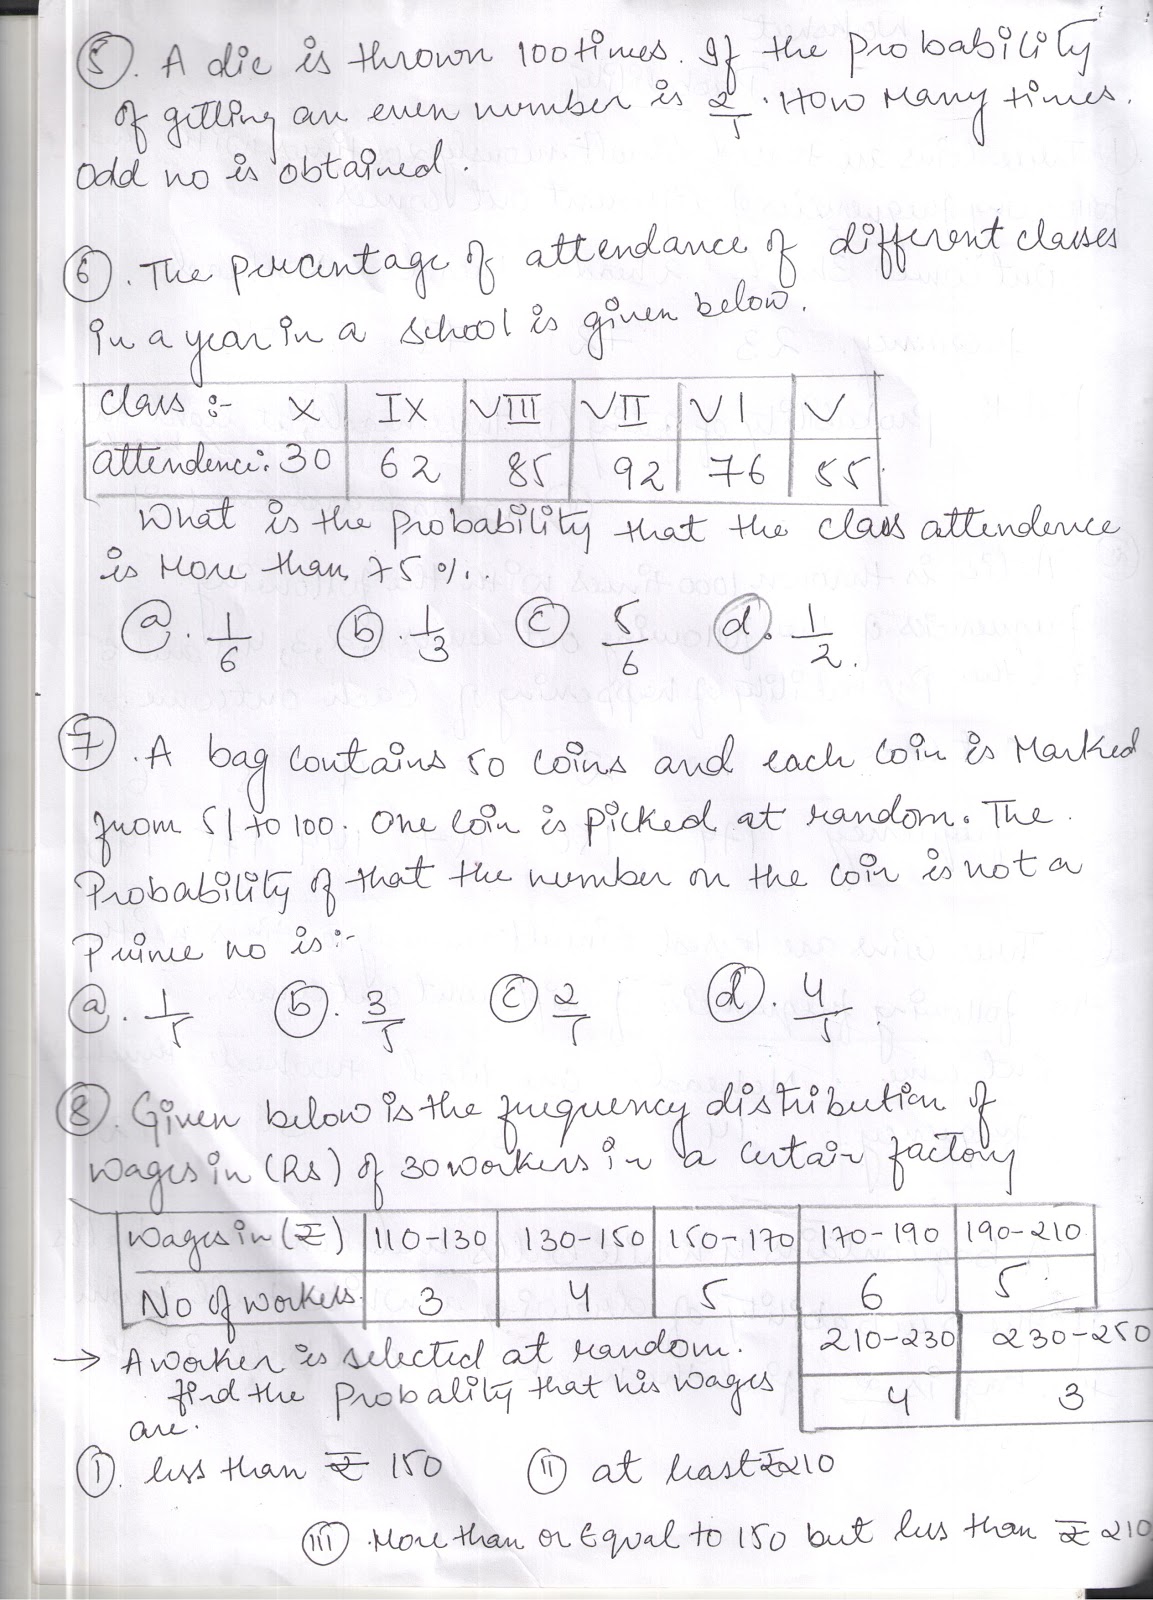 5. A die is thrown 100 times. If the probability
of getting an even number is 2/5. How many times.
odd no is obtained.
6. The percentage of attendance of different classes
in a year in a school is given below.
Class :- X IX VIII VII VI V
attendence: 30 62 85 92 76 55
What is the probability that the class attendence
is more than 75%.
a. 1/6 b. 1/3 c 5/6 d. 1/2.
7. A bag contains 50 coins and each coin is Marked
from 51 to 100. One coin is picked at random. The
Probability of that the number on the coin is not a
Prime no is:-
a. 1/5 b. 3/5 c 2/5 d. 4/5.
8. Given below is the frequency distribution of
wages in (Rs) of 30 workers in a certain factory
Wages in (₹) 110-130 130-150 150-170 170-190 190-210
No of workers 3 4 5 6 5
210-230 230-250
4 3
→ A worker is selected at random.
find the Probality that his wages
are.
i. less than ₹ 150 ii at least ₹ 210
iii. More than or Equal to 150 but less than ₹ 210